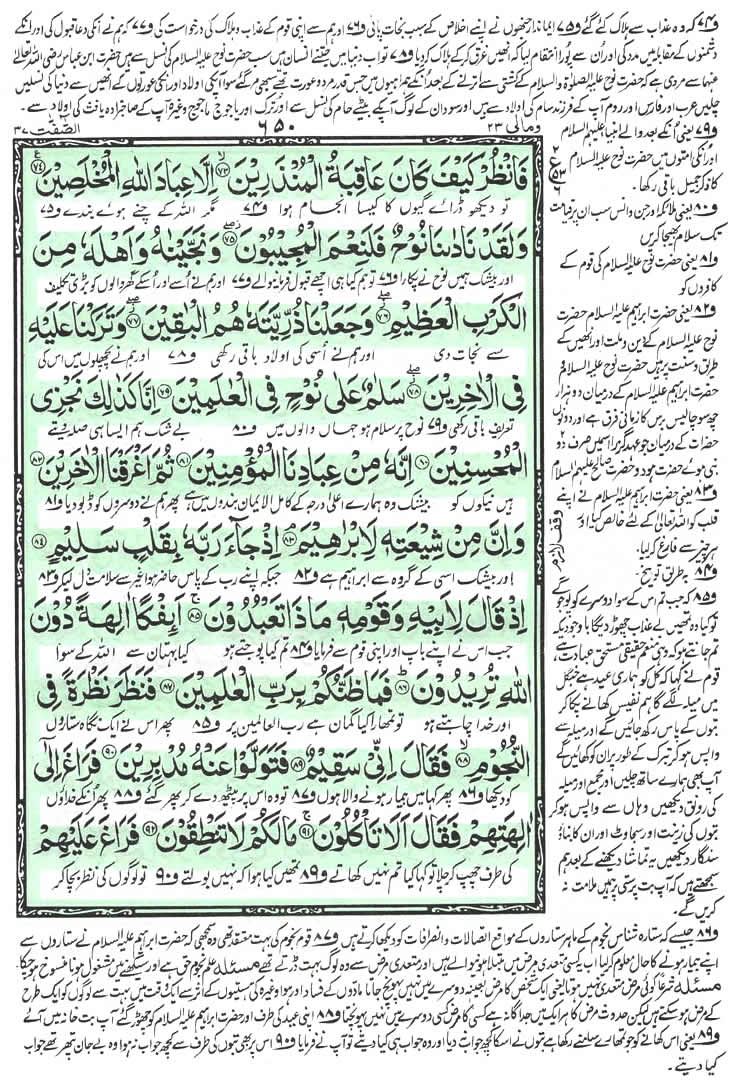 ف۷۴ کہ وہ عذاب سے ہلاک کئے گئے ف۷۵ ایماندار جنھوں نے اپنے اخلاص کے سبب نجات پائی ف۷۶ اور ہم سے اپنی قوم کے عذاب و ہلاک کی درخواست کی ف۷۷ کہ ہم نے انکی دعا قبول کی اور انکے
دشمنوں کے مقابلہ میں مدد کی اور اُن سے پُورا انتقام لیا کہ انھیں غرق کر کے ہلاک کر دیا ف۷۸ تو اب دنیا میں جتنے انسان ہیں سب حضرت نوح علیہ السلام کی نسل سے ہیں حضرت ابن عباس رضی اللہ تعالیٰ
عنہما سے مروی ہے کہ حضرت نوح علیہ الصلوٰۃ والسلام کے کشتی سے اترنے کے بعد انکے ہمراہیوں میں جس قدر مرد و عورت تھے سبھی مر گئے سوا آپکی اولاد اور انکی عورتوں کے انھیں سے دنیا کی نسلیں
چلیں عرب اور فارس اور روم آپ کے فرزند سام کی اولاد سے ہیں اور سودان کے لوگ آپ کے بیٹے حام کی نسل سے اور ترک اور یاجوج ماجوج وغیرہ آپ کے صاحبزادہ یافث کی اولاد سے۔
الصّٰفّٰت ۳۷
۶۵۰
ومالی ۲۳
فَانْظُرْ كَيْفَ كَانَ عَاقِبَةُ الْمُنْذَرِيْنَ ۷۳ اِلَّا عِبَادَ اللّٰهِ الْمُخْلَصِيْنَ ۷۴
تو دیکھو ڈرائے گیوں کا کیسا انجام ہوا ف۷۴ مگر اللہ کے چنے ہوئے بندے ف۷۵
وَلَقَدْ نَادٰىنَا نُوْحٌ فَلَنِعْمَ الْمُجِيْبُوْنَ ۷۵ وَنَجَّيْنٰهُ وَاَهْلَهٗ مِنَ
اور بیشک ہمیں نوح نے پکارا ف۷۶ تو ہم کیا ہی اچھے قبول فرمانیوالے ف۷۷ اور ہم نے اُسے اور اُسکے گھر والوں کو بڑی تکلیف
الْكَرْبِ الْعَظِيْمِ ۷۶ وَجَعَلْنَا ذُرِّيَّتَهٗ هُمُ الْبٰقِيْنَ ۷۷ وَتَرَكْنَا عَلَيْهِ
سے نجات دی اور ہم نے اُسی کی اولاد باقی رکھی ف۷۸ اور ہم نے پچھلوں میں اس کی
فِى الْاٰخِرِيْنَ ۷۸ سَلٰمٌ عَلٰى نُوْحٍ فِى الْعٰلَمِيْنَ ۷۹ اِنَّا كَذٰلِكَ نَجْزِى
تعریف باقی رکھی ف۷۹ نوح پر سلام ہو جہاں والوں میں ف۸۰ بے شک ہم ایسا ہی صلہ دیتے
الْمُحْسِنِيْنَ ۸۰ اِنَّهٗ مِنْ عِبَادِنَا الْمُؤْمِنِيْنَ ۸۱ ثُمَّ اَغْرَقْنَا الْاٰخَرِيْنَ ۸۲
ہیں نیکوں کو بیشک وہ ہمارے اعلیٰ درجہ کے کامل الایمان بندوں میں ہے پھر ہم نے دوسروں کو ڈبو دیا ف۸۱
وَاِنَّ مِنْ شِيْعَتِهٖ لَاِبْرٰهِيْمَ ۸۳ اِذْ جَآءَ رَبَّهٗ بِقَلْبٍ سَلِيْمٍ ۸۴
اور بیشک اسی کے گروہ سے ابراہیم ہے ف۸۲ جبکہ اپنے رب کے پاس حاضر ہوا غیر سے سلامت دل لیکر ف۸۳
اِذْ قَالَ لِاَبِيْهِ وَقَوْمِهٖ مَاذَا تَعْبُدُوْنَ ۸۵ اَئِفْكًا اٰلِهَةً دُوْنَ
جب اس نے اپنے باپ اور اپنی قوم سے فرمایا ف۸۴ تم کیا پوجتے ہو کیا بہتان سے اللہ کے سوا
اللّٰهِ تُرِيْدُوْنَ ۸۶ فَمَا ظَنُّكُمْ بِرَبِّ الْعٰلَمِيْنَ ۸۷ فَنَظَرَ نَظْرَةً فِى
اور خدا چاہتے ہو تو تمھارا کیا گمان ہے رب العالمین پر ف۸۵ پھر اس نے ایک نگاہ ستاروں
النُّجُوْمِ ۸۸ فَقَالَ اِنِّىْ سَقِيْمٌ ۸۹ فَتَوَلَّوْا عَنْهُ مُدْبِرِيْنَ ۹۰ فَرَاغَ اِلٰٓى
کو دیکھا ف۸۶ پھر کہا میں بیمار ہونے والا ہوں ف۸۷ تو وہ اس پر پیٹھ دے کر پھر گئے ف۸۸ پھر انکے خداؤں
اٰلِهَتِهِمْ فَقَالَ اَلَا تَاْكُلُوْنَ ۹۱ مَا لَكُمْ لَا تَنْطِقُوْنَ ۹۲ فَرَاغَ عَلَيْهِمْ
کی طرف چھپ کر چلا تو کہا کیا تم نہیں کھاتے ف۸۹ تمھیں کیا ہوا کہ نہیں بولتے ف۹۰ تو لوگوں کی نظر بچا کر
ف۷۹ یعنی انکے بعد والے انبیا علیہم السلام
اور انکی امتوں میں حضرت نوح علیہ السلام
کا ذکر جمیل باقی رکھا۔
ف۸۰ یعنی ملائکہ اور جن و انس سب ان پر قیامت
تک سلام بھیجا کریں
ف۸۱ یعنی حضرت نوح علیہ السلام کی قوم کے
کافروں کو
ف۸۲ یعنی حضرت ابراہیم علیہ السلام حضرت
نوح علیہ السلام کے دین و ملت اور انھیں کے
طریق و سنت پر ہیں حضرت نوح علیہ السلام و
حضرت ابراہیم علیہ السلام کے درمیان دو ہزار
چھ سو چالیس برس کا زمانی فرق ہے اور دونوں
حضرات کے درمیان جو عہد گزرا اسمیں صرف دو
نبی ہوئے حضرت ہود و حضرت صالح علیہما السلام
ف۸۳ یعنی حضرت ابراہیم علیہ السلام نے اپنے
قلب کو اللہ تعالیٰ کے لئے خالص کیا اور
ہر چیز سے فارغ کر لیا۔
وقف لازم
ف۸۴ بہ طریق توبیخ۔
ف۸۵ کہ جب تم اس کے سوا دوسرے کو پوجو گے
تو کیا وہ تمھیں بے عذاب چھوڑ دیگا باوجودیکہ
تم جانتے ہو کہ وہی منعم حقیقی مستحق عبادت ہے
قوم نے کہا کہ کل کو ہماری عید ہے جنگل
میں میلہ لگے گا ہم نفیس کھانے پکا کر
بتوں کے پاس رکھ جائیں گے اور میلہ سے
واپس ہو کر تبرک کے طور پر ان کو کھائیں گے
آپ بھی ہمارے ساتھ چلیں اور مجمع اور میلہ
کی رونق دیکھیں وہاں سے واپس ہو کر
بتوں کی زینت اور سجاوٹ اور ان کا بناؤ
سنگار دیکھیں یہ تماشا دیکھنے کے بعد ہم
سمجھتے ہیں کہ آپ بت پرستی پر ہمیں ملامت نہ
کریں گے۔
ف۸۶ جیسے کہ ستارہ شناس نجوم کے ماہر ستاروں کے مواقع اتصالات و انصرافات کو دیکھا کرتے ہیں ف۸۷ قوم نجوم کی بہت معتقد تھی وہ سمجھی کہ حضرت ابراہیم علیہ السلام نے ستاروں سے
اپنے بیمار ہونے کا حال معلوم کر لیا اب یہ کسی متعدی مرض میں مبتلا ہونیوالے ہیں اور متعدی مرض سے وہ لوگ بہت ڈرتے تھے مسئلہ علم نجوم حق ہے اور سیکھنے میں مشغول ہونا منسوخ ہو چکا
مسئلہ شرعاً کوئی مرض متعدی نہیں ہوتا یعنی ایک شخص کا مرض بعینہٖ دوسرے میں نہیں پہونچ جاتا مادّوں کے فساد اور ہوا وغیرہ کی سمیتوں کے اثر سے ایک وقت میں بہت سے لوگوں کو ایک طرح کے
مرض ہو سکتے ہیں لیکن حدوث مرض کا ہر ایک میں جداگانہ ہے کسی کا مرض کسی دوسرے میں نہیں پہونچتا ف۸۸ اپنی عید کی طرف اور حضرت ابراہیم علیہ السلام کو چھوڑ گئے آپ بت خانہ میں آئے
ف۸۹ یعنی اس کھانے کو جو تمھارے سامنے رکھا ہے بتوں نے اسکا کچھ جواب نہ دیا اور وہ جواب ہی کیا دیتے تو آپ نے فرمایا ف۹۰ اس پر بھی بتوں کی طرف سے کچھ جواب نہ ہوا وہ بے جان پتھر تھے جواب
کیا دیتے۔